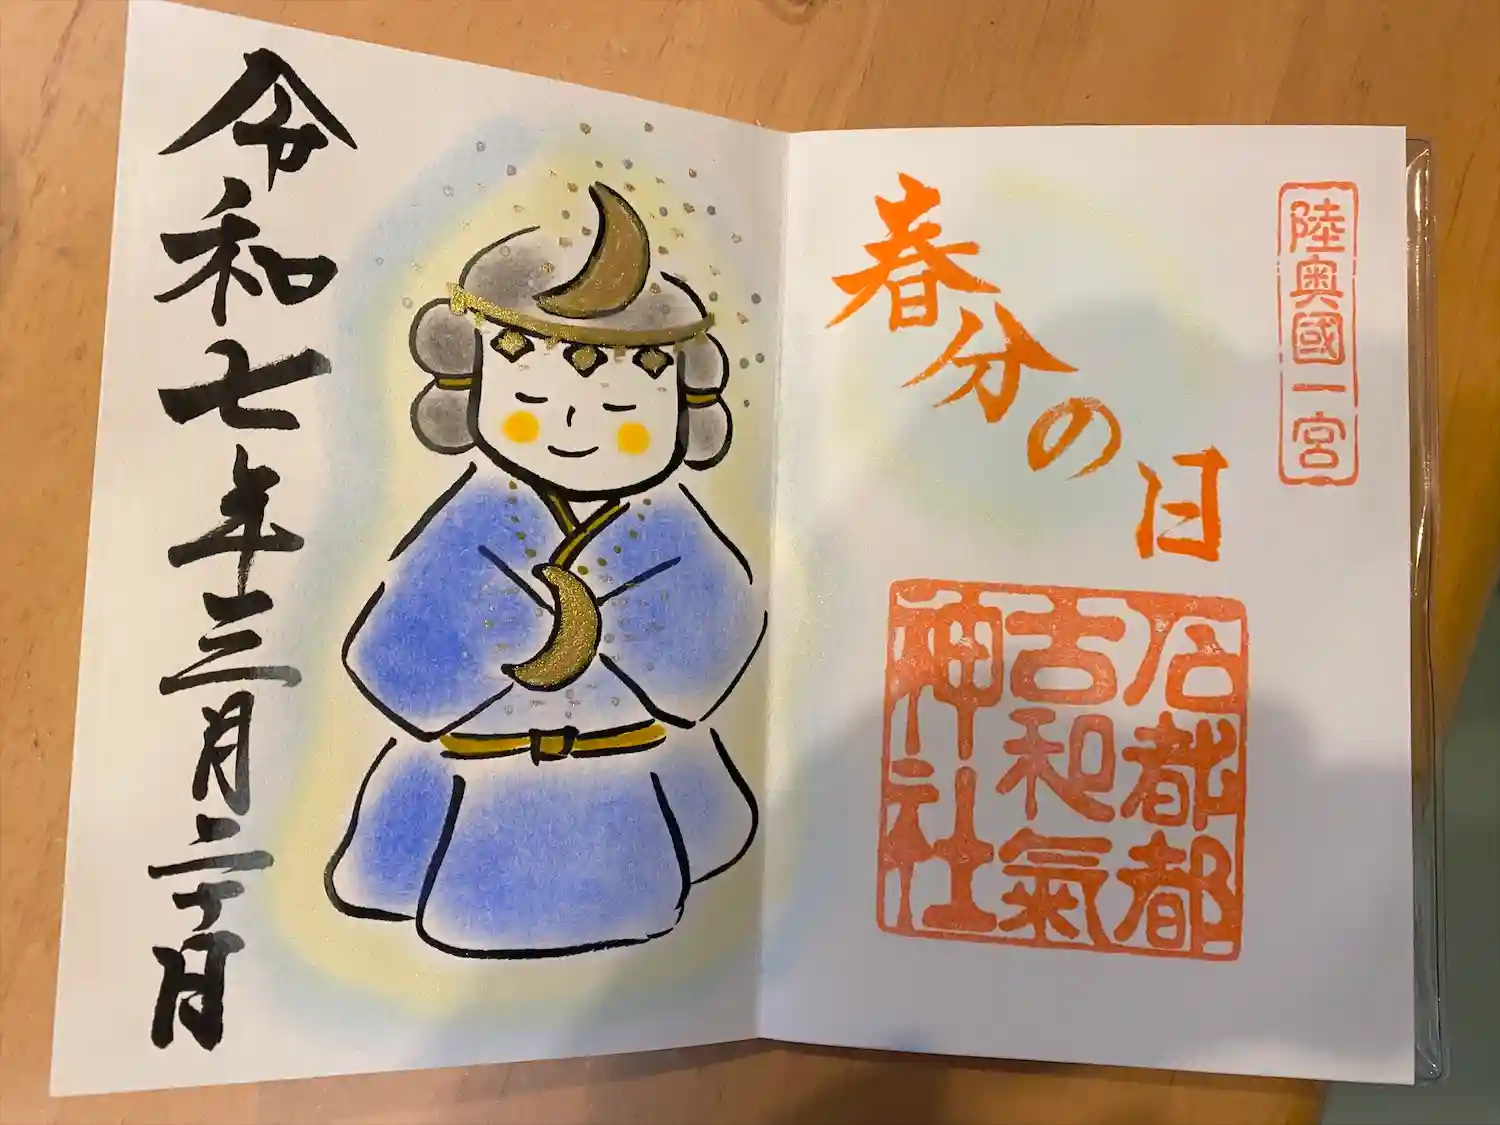 陸奥國一宮
春分の日
石都都
古和氣
神社
令和七年三月二十日